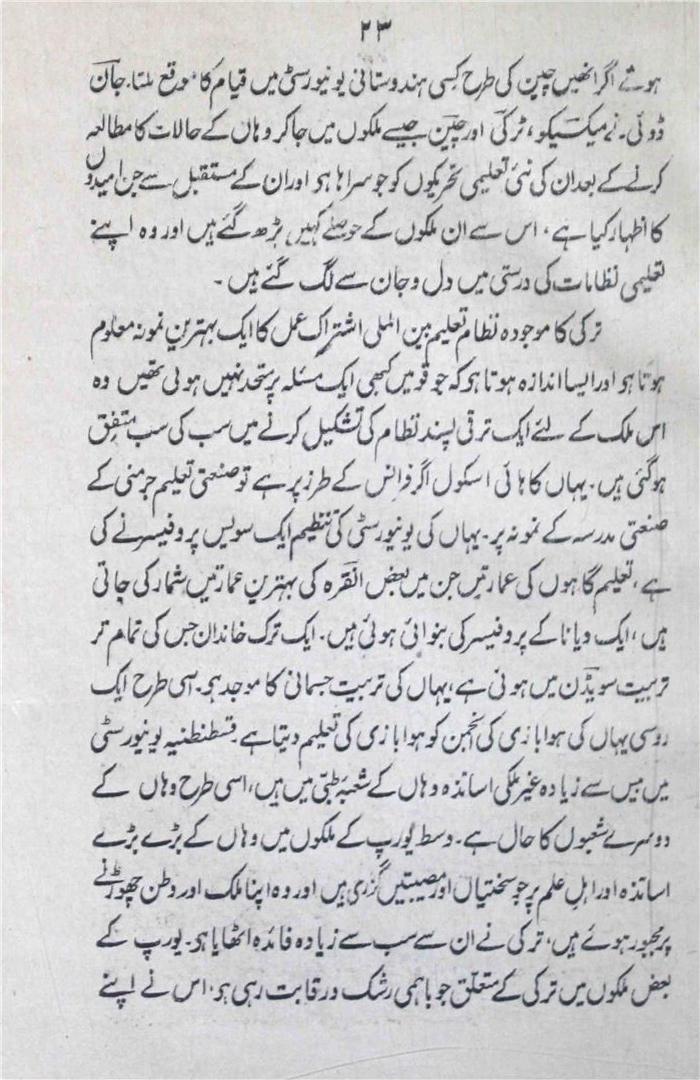 ۲۳
ہوتے اگر انھیں چین کی طرح کسی ہندوستانی یونیورسٹی میں قیام کا موقع ملتا۔ جان
ڈوئی۔ نے میکسیکو، ٹرکی اور چین جیسے ملکوں میں جاکر وہاں کے حالات کا مطالعہ
کرنے کے بعد ان کی نئی تعلیمی تحریکوں کو جو سراہا ہو اور ان کے مستقبل سے جن امیدوں
کا اظہار کیا ہے، اس سے ان ملکوں کے حوصلے کہیں بڑھ گئے ہیں اور وہ اپنے
تعلیمی نظامات کی درستی میں دل و جان سے لگ گئے ہیں۔
ترکی کا موجودہ نظام تعلیم بین المللی اشتراک عمل کا ایک بہترین نمونہ معلوم
ہوتا ہو اور ایسا اندازہ ہوتا ہو کہ جو قومیں کبھی ایک مسئلہ پر متحد نہیں ہوئی تھیں وہ
اس ملک کے لئے ایک ترقی پسند نظام کی تشکیل کرنے میں سب کی سب متفق
ہوگئی ہیں۔ یہاں کا ہائی اسکول اگر فرانس کے طرز پر ہے تو صنعتی تعلیم جرمنی کے
صنعتی مدرسہ کے نمونہ پر۔ یہاں کی یونیورسٹی کی تنظیم ایک سویس پروفیسر نے کی
ہے، تعلیم گاہوں کی عمارتیں جن میں بعض انقرہ کی بہترین عمارتیں شمار کی جاتی
ہیں، ایک ویانا کے پروفیسر کی بنوائی ہوئی ہیں۔ ایک ترک خاندان جس کی تمام تر
تربیت سویڈن میں ہوئی ہے، یہاں کی تربیت جسمانی کا موجد ہو۔ اسی طرح ایک
روسی یہاں کی ہوا بازی کی انجمن کو ہوا بازی کی تعلیم دیتا ہے۔ قسطنطنیہ یونیورسٹی
میں بیس سے زیادہ غیر ملکی اساتذہ وہاں کے شعبۂ طبّی میں ہیں، اسی طرح وہاں کے
دوسرے شعبوں کا حال ہے۔ وسط یورپ کے ملکوں میں وہاں کے بڑے بڑے
اساتذہ اور اہل علم پر جو سختیاں اور مصیبتیں گزری ہیں اور وہ اپنا ملک اور وطن چھوڑنے
پر مجبور ہوئے ہیں، ترکی نے ان سے سب سے زیادہ فائدہ اٹھایا ہو۔ یورپ کے
بعض ملکوں میں ترکی کے متعلق جو باہمی رشک و رقابت رہی ہو، اس نے اپنے